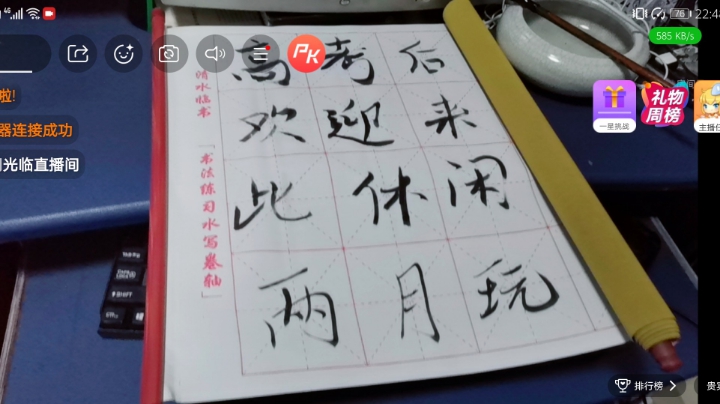 4G
76
22:48
585 KB/s
PK
啦!
器连接成功
光临直播间
礼物
周榜
一星挑战
主播任
高考后
欢迎来
此休闲
两月玩
清水临书
「书法练习水写卷轴」
SHIFT
排行榜
贵宾